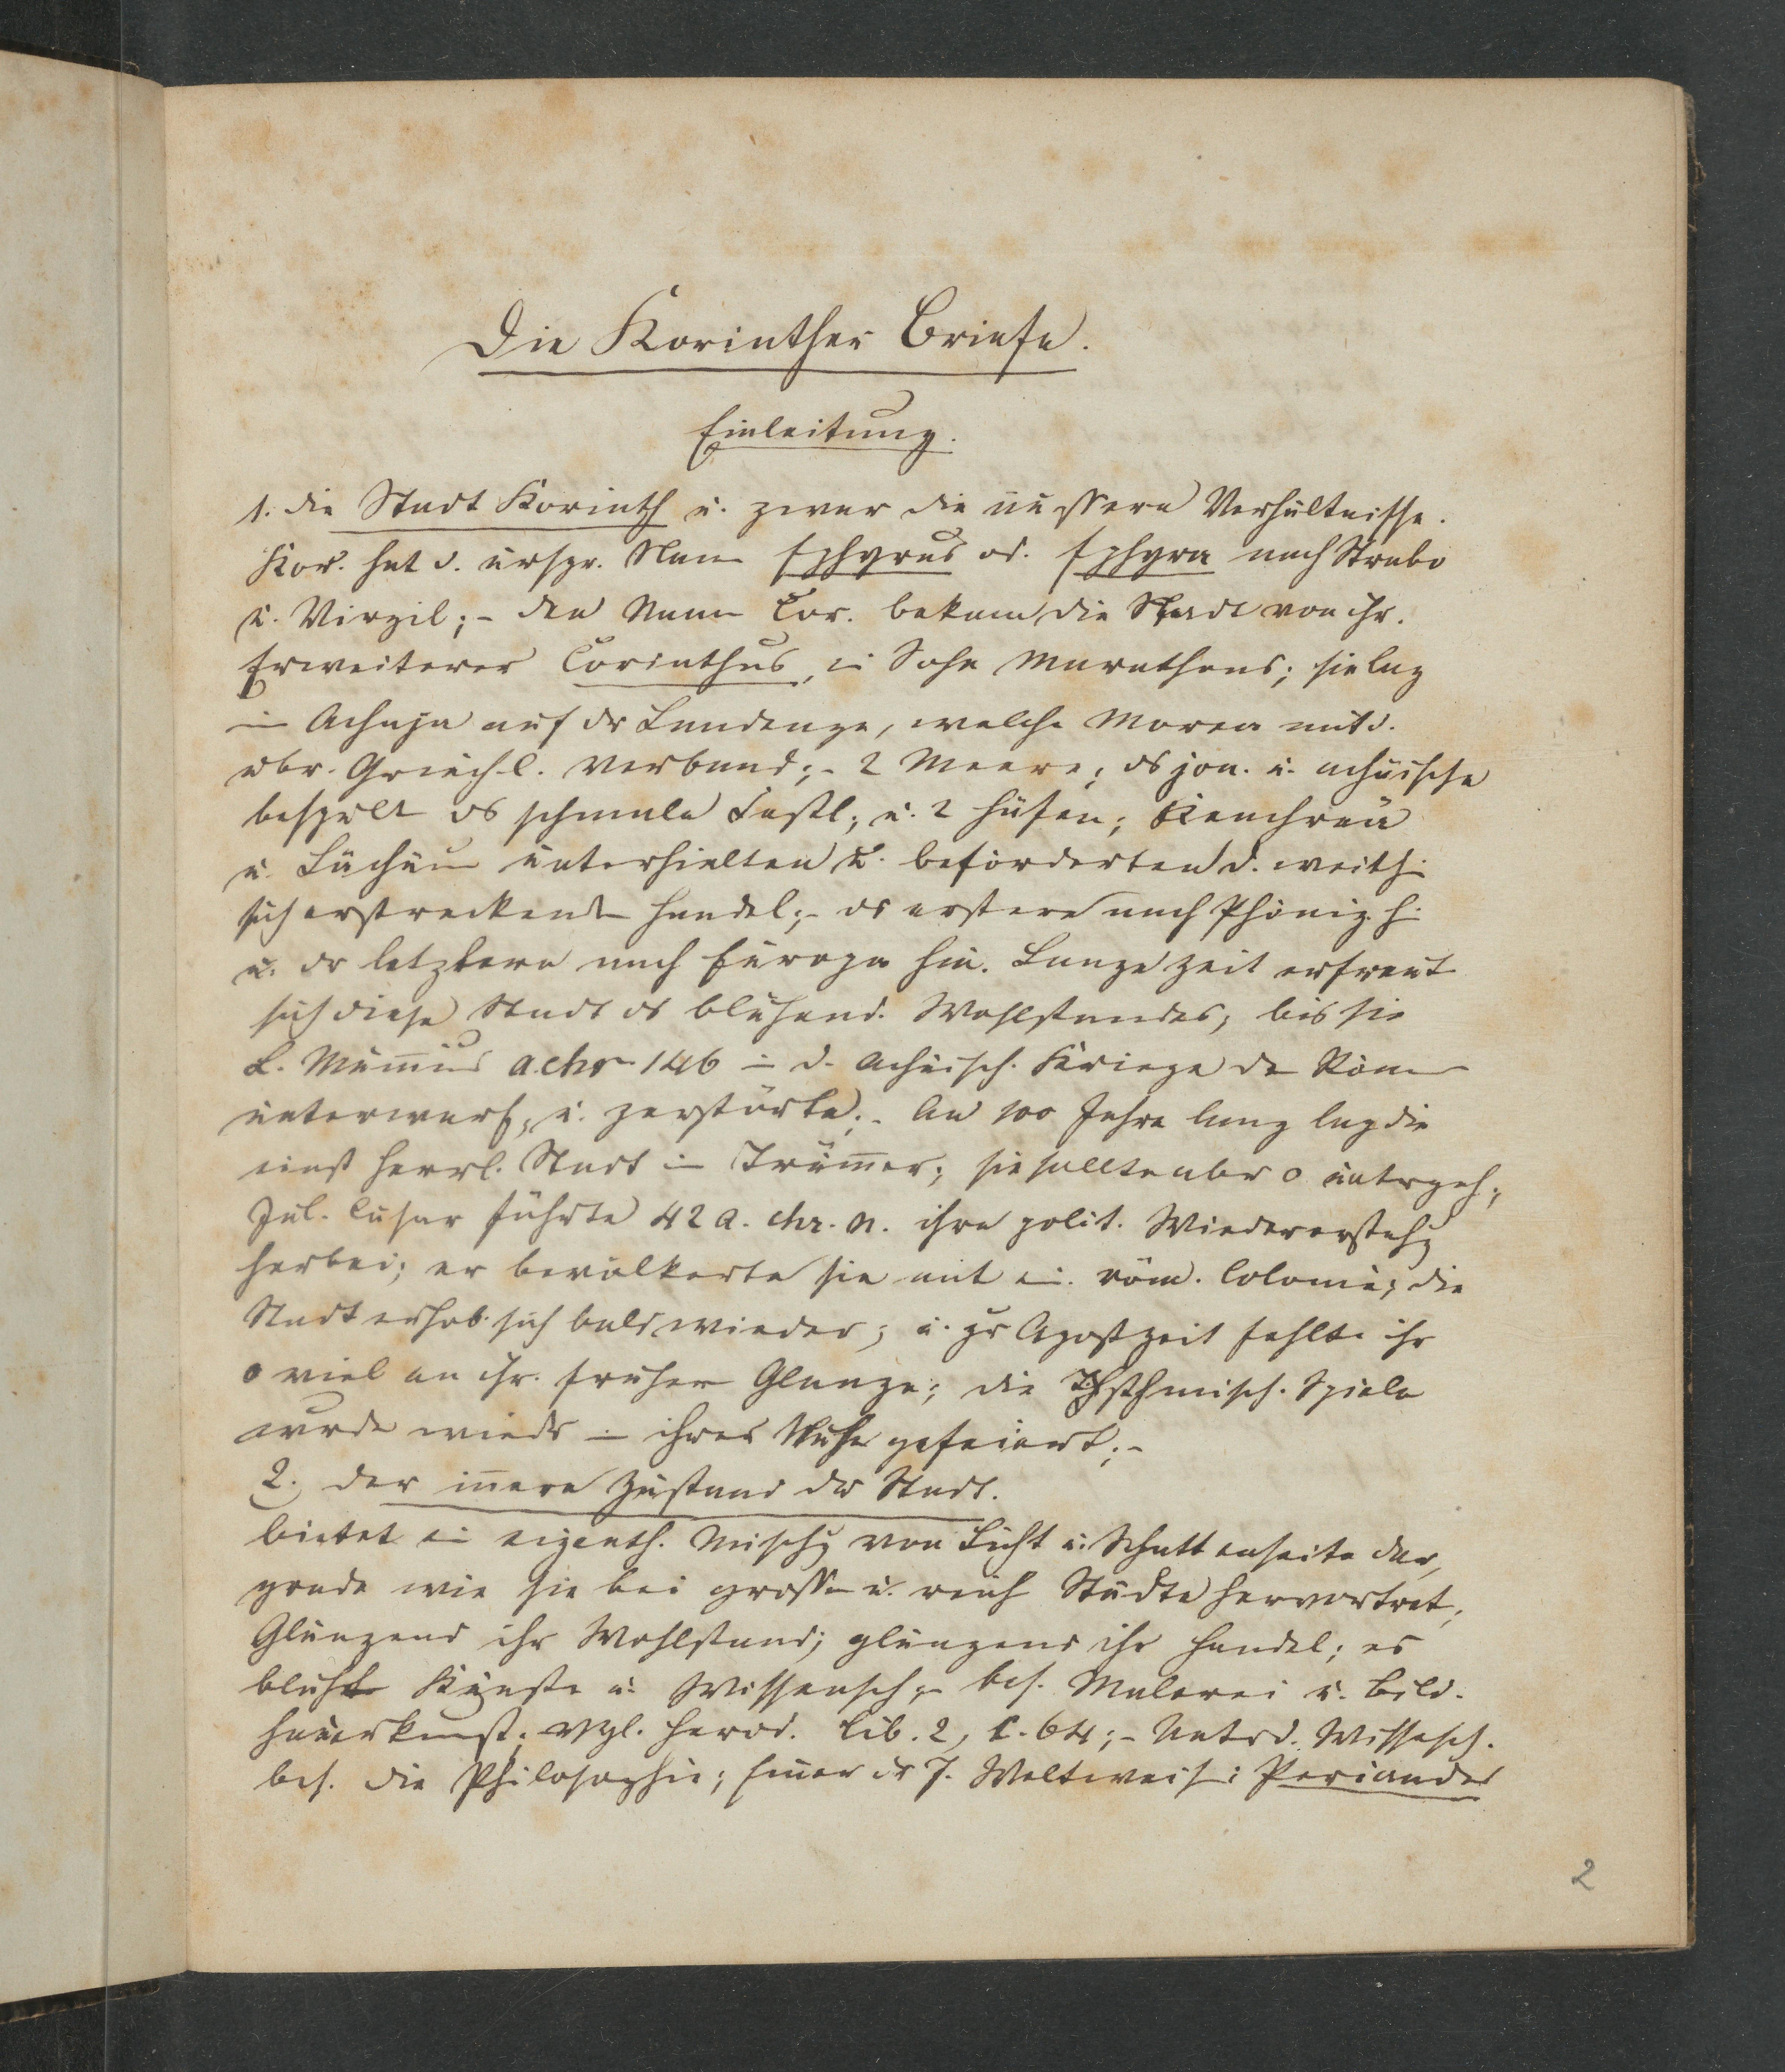 Die Korinther Briefe.
Einleitung.
1. die Stadt Korinth u. zwar die äussern Verhältnisse.
Kor. hat d. urspr. Nam Ephyrus od. Ephyra nach Strabo
u. Virgil; - den Namn Cor. bekam die Stadt von ihr.
Erweiterer Corinthus, ei Sohn Marathons; sie lag
in Achaja auf dr Landenge, welche Morea mit d.
übr. Griechl. verband; - 2 Meere; ds jon. u. achäische
bespült ds schmale Festl; u. 2 Häfen; Kenchreä
u. Lächäum unterhielten u. beförderten d. weith.
sich erstreckendn Handel; - dr erstere nach Phöniz. h.
u. dr letztere nach Europa hin. Lange Zeit erfreut
sich diese Stadt ds blühend. Wohlstandes; bis sie
L. Mum̄ius a. chr 146 in d. Achäisch. Kriege dn Römn
unterwarf, u. zerstörte; - An 100 Jahre lang lag die
einst herrl. Stadt in Trüm̄er; sie sollte abr o untrgeh;
Jul. Cäsar führte 42 a. chr. n. ihre polit. Wiedererstehg
herbei; er bevölkerte sie mit ei. röm. Colonie; die
Stadt erhob sich bald wieder; u. zr Apostzeit fehlte ihr
o viel an ihr. frühern Glanze; die Isthmisch. Spiele
wurdn wiedr in ihrer Nähe gefeiert; -
2. der in̄ere Zustand dr Stadt.
bietet ei eigenth. Mischg von Licht u. Schattenseite dar,
grade wie sie bei grossn u. reich Städte hervortret;
Glänzend ihr Wohlstand; glänzend ihr Handel; es
blühtn Künste u. Wissensch; - bes. Malerei u. Bild-
hauerkunst. vgl. Herod. lib. 2, c. 64; - Untr d. Wissesch.
bes. die Philosophie; Einer dr 7. Weltweis: Periander
2